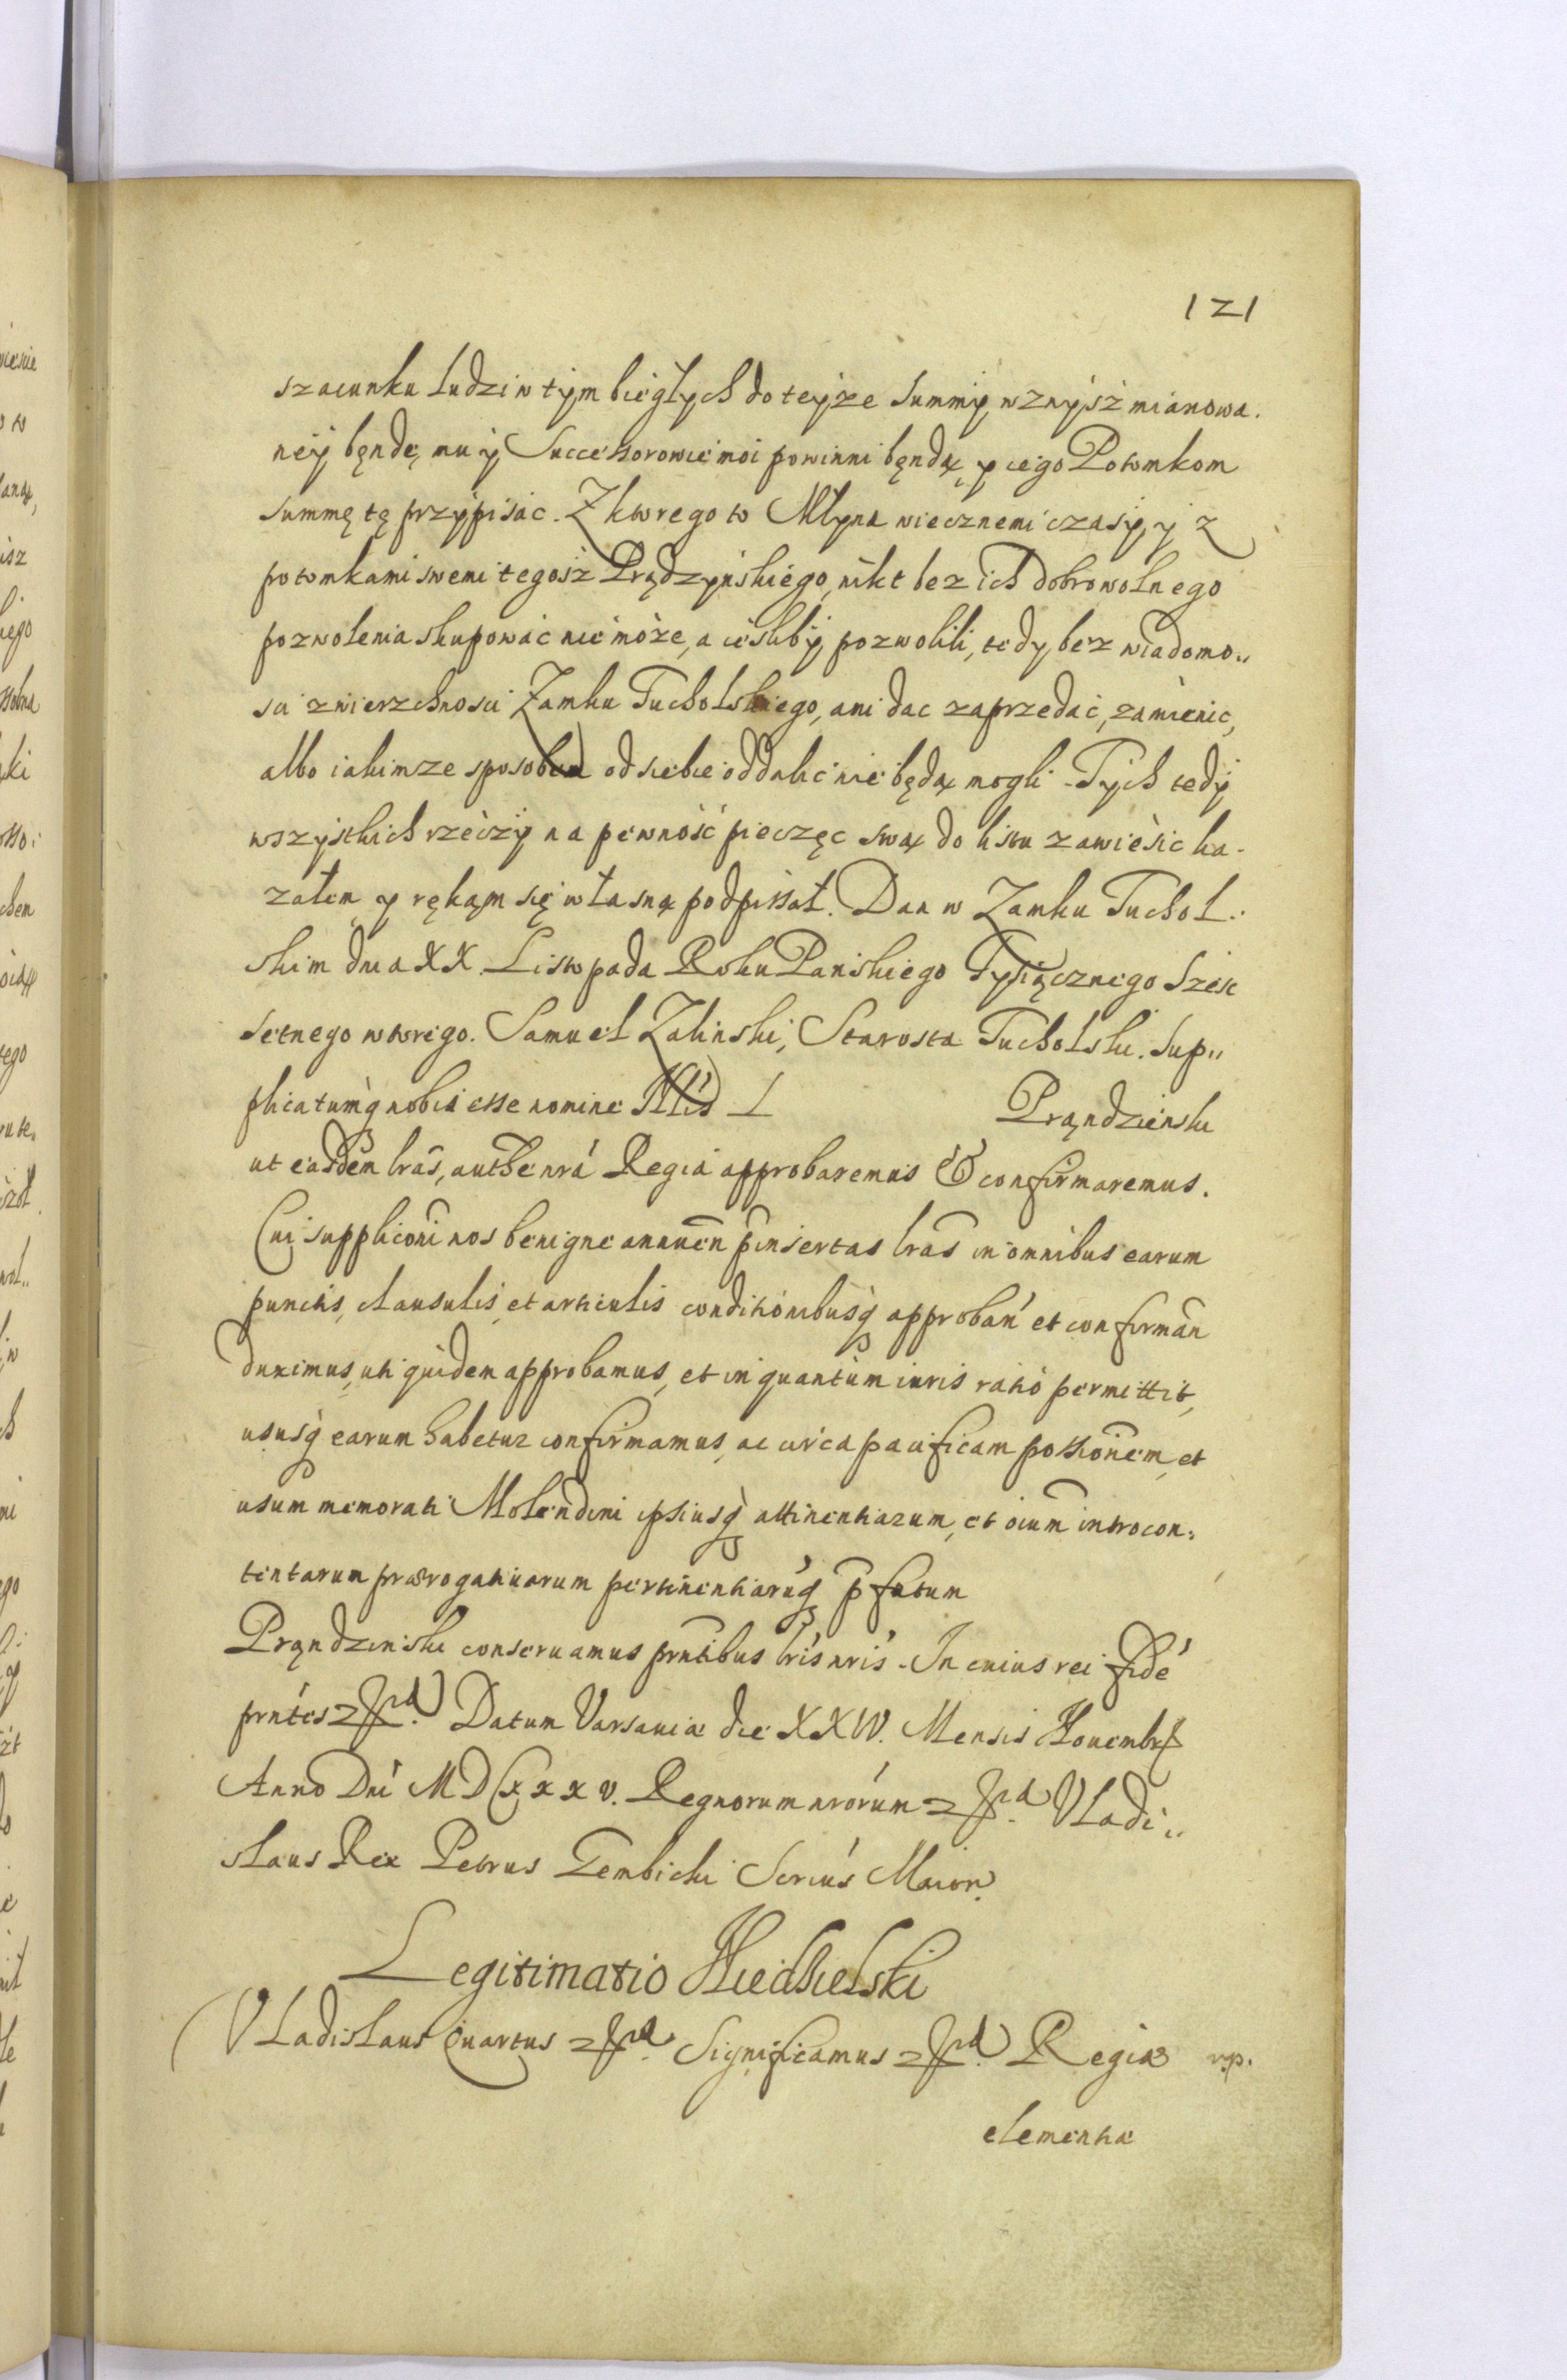 121
szacunku ludzi w tym biegłych do teyze Summy wznysz mianowa.
ney będę mu y Successorowie moi powinni będą y iego Potomkom
summę tę przypisac. Z ktorego to Młyna wiecznemi czasy, y z
potomkami swemi tegosz Prądzynskiego, nikt bez ich dobrowolnego
pozwolenia skupować nie może, a iesliby pozwolili, tedy bez wiadomo„
sci zwierzchnosci Zamku Tucholskiego, ani dac zaprzedać, zamienic,
albo iakimze sposobem od siebie oddalić nie będą mogli. Tych tedy
wszystkich rzeczy na pewność pieczęc swą do listu zawiesic ka-
załem y ręką się własną podpissał. Dan w Zamku Tuchol.
skim dnia XX Listopada Roku Panskiego Tysiącznego Szesc
setnego wtorego. Samuel Zalinski, Starosta Tucholski. Sup„
plicatumq nobis esse nomine Nlis L Prądzienski
ut easdem lras, authe nra Regia approbaremus & confirmaremus.
Cui supplicõni nos benigne annuen pinsertas lras in omnibus earum
punctis, clausulis, et articulis conditionibusq approban et confirman
duximus, uti quidem approbamus, et in quantum iuris ratio permittit,
ususq earum habetur confirmamus, ac circa pacificam possionem, et
usum memorati Molendini ipsiusq attinentiarum, et oium introcon„
tentarum praerogatiuarum pertinentiaruq pfatum
Prądzinski conseruamus prntibus lris nris. In cuius rei fidé
prntes &ra. Datum Varsauiae die XXIV. Mensis Nouembr
Anno Dni MDCxxxv. Regnorum nrorum &ra Vladi„
slaus Rex Petrus Gembicki Scrius Maior.
Legitimatio Niedzielski
Vladislaus Quartus &ra. Significamus &ra. Regiae
clementiae